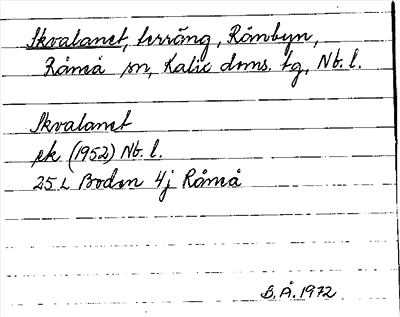 Skvalanet, terräng, Rånbyn,
Råneå sn, Kalix doms. tg, Nb. l.
Skvalanet
ek. (1952) Nb. l.
25 L Boden 4j Råneå
B.Å. 1972